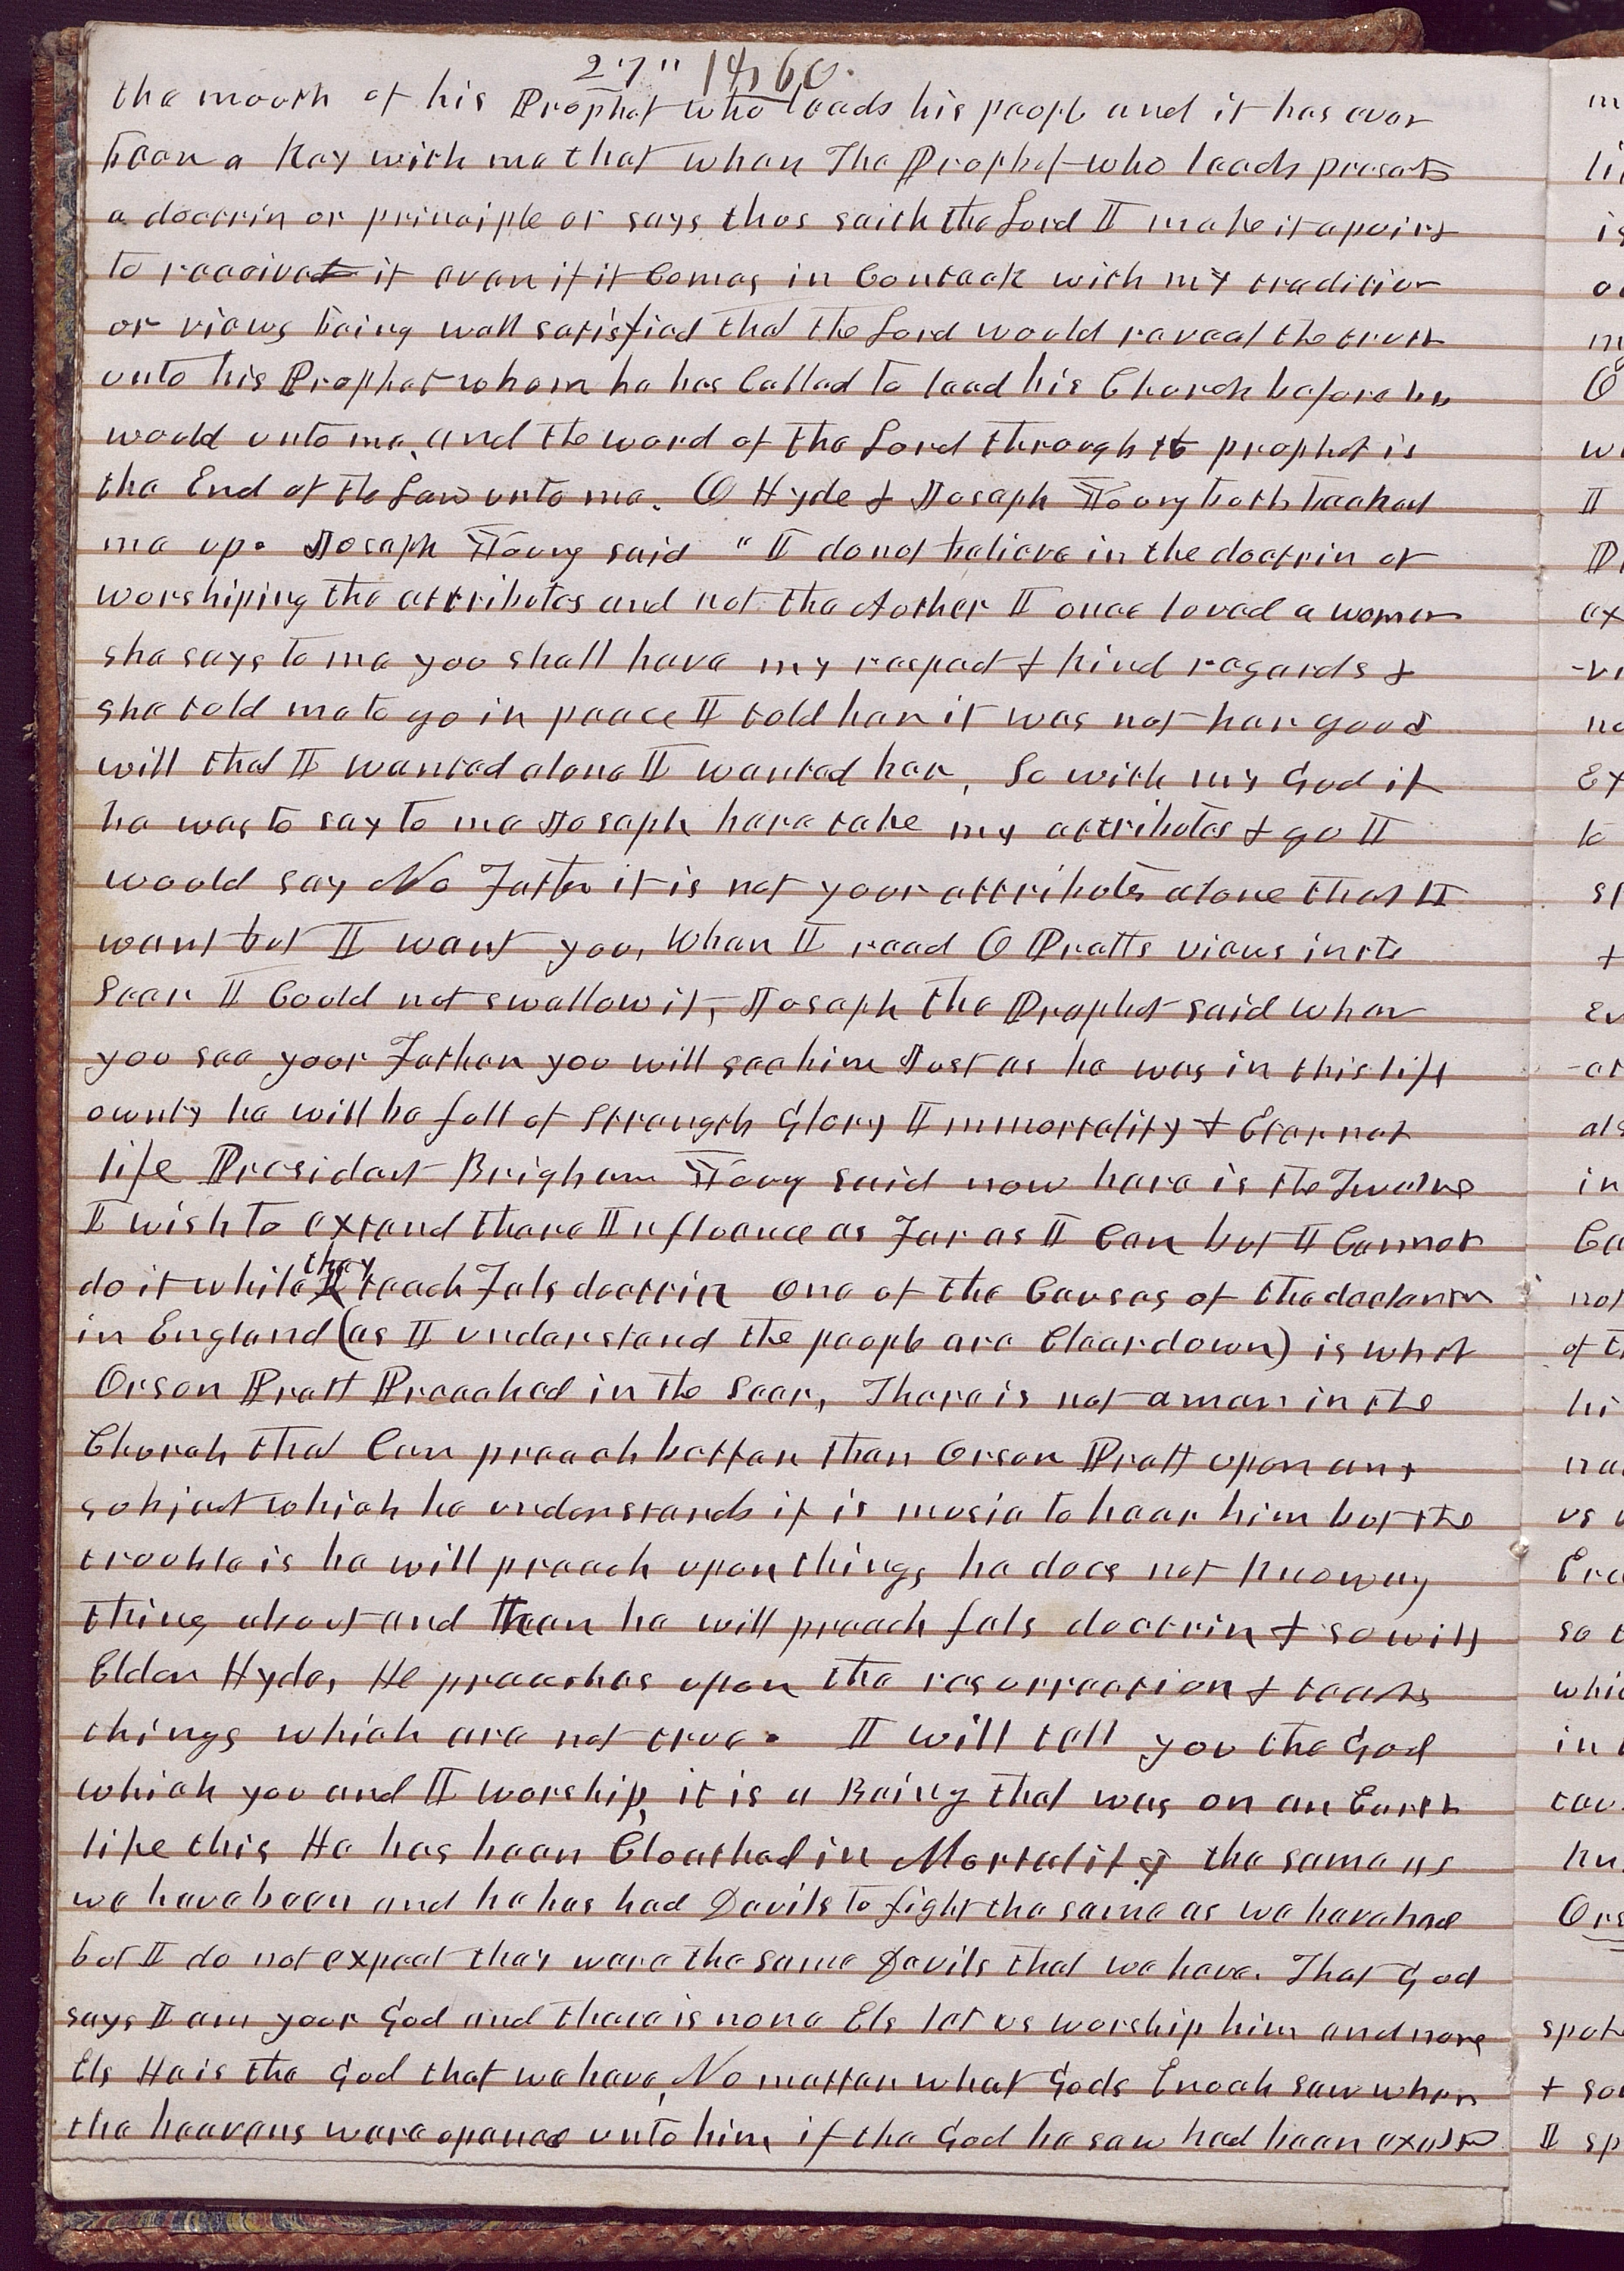 27" 1860.
the mouth of his Prophet who leads his people and it has ever
been a Key with me that when The Prophet who leads presents
a doctrin or principle or says thus saith the Lord I make it a point
to receive it even if it Comes in Contack with my tradition
or views being well satisfied that the Lord would reveal the truth
unto his Prophet whom he has Called to lead his Church before he
would unto me, and the word of the Lord through the prophet is
the End of the Law unto me. O Hyde & Joseph Young both backed
me up. Joseph Young said "I do not believe in the doctrin of
worshiping the attributes and not the Auther I once loved a woman
she says to me you shall have my respect & kind regards &
she told me to go in peace I told her it was not her good
will that I wanted alone I wanted her, So with my God if
he was to say to me Joseph here take my attributes & go I
would say No Father it is not your attributes alone that I
want but I want you, When I read O Pratts views in the
Seer I Could not swallow it, Joseph the Prophet said when
you see your Father you will see him Just as he was in this life
ownly he will be full of Strength Glory Immortality & Eternal
life President Brigham Young said now here is the Twelve
I wish to extend there Influence as Far as I Can but I Cannot
do it while they teach Fals doctrin one of the Causes of the declension
in England (as I understand the people are Clear down) is what
Orson Pratt Preached in the Seer, There is not a man in the
Church that Can preach better than Orson Pratt upon any
subject which he understands it is music to hear him but the
trouble is he will preach upon things he does not know any
thing about and then he will preach fals doctrin & so will
Elder Hyde, He preaches upon the resurrection & teaches
things which are not true. I will tell you the God
which you and I worship, it is a Being that was on an Earth
like this He has been Cloathed in Mortality the same as
we have been and he has had Devils to fight the same as we have had
but I do not expect they were the same Devils that we have. That God
says I am your God and there is none Els let us worship him and none
Els He is the God that we have, No matter what Gods Enoch saw when
the heavens were opened unto him if the God he saw had been